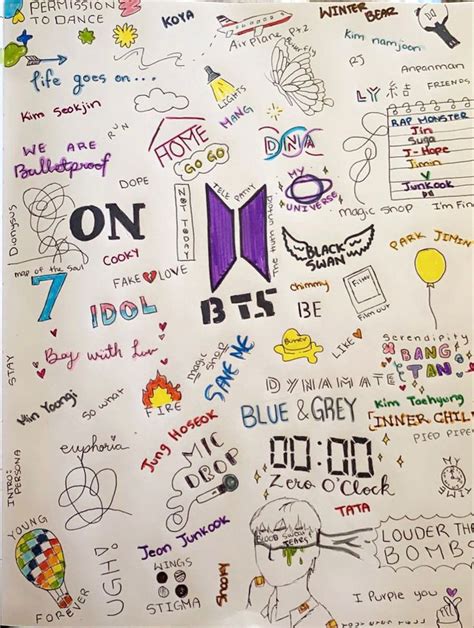 PERMISSION
TO DANCE
KOYA
AirPlane Pt2
WINTER
BEAR
Kim namjoon
life goes on...
Butterfly
RJ
Anpanman
LIGHTS
LY 結
FRIENDS
Kim Seokjin
RUN
MANG
HOME
DNA
RAP MONSTER
Jin
Suga
J-Hope
Jimin
V
Junkook
WE ARE
Bulletproof
GO GO
DOPE
NOT TODAY
TELEPATHY
MY
UNIVERSE
magic Shop
Im Fine
Dionysus
ON
The truth untold
BLACK
SWAN
PARK JIMIN
COOKY
map of the Soul
7
FAKE LOVE
chimmy
FilM out
IDOL
BTS
BE
Butter
LIKE
Serendipity
BANG
TAN
STAY
Boy with Luv
magic
shop
SAVE ME
DYNAMATE
Kim Taehyung
[INNER CHIL
Min Yoongi
So what
FIRE
BLUE & GREY
PIED PIPE
euphoria
Jung Hoseok
MIC
DROP
00:00
Zero O'Clock
INTRO:
PERSONA
MY
TIME
TATA
YOUNG
FOREVER
UGH!
Jeon Junkook
BLOOD Sweat
TEARS
LOUDER THE
BOMB
WINGS
STIGMA
Shooky
I Purple you